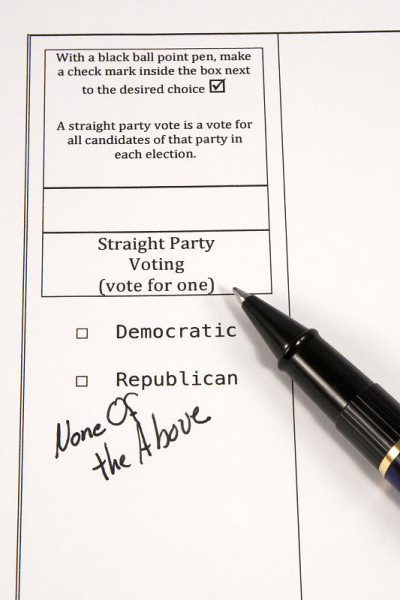 With a black ball point pen, make
a check mark inside the box next
to the desired choice ☑
A straight party vote is a vote for
all candidates of that party in
each election.
Straight Party
Voting
(vote for one)
☐ Democratic
☐ Republican
None Of
the Above